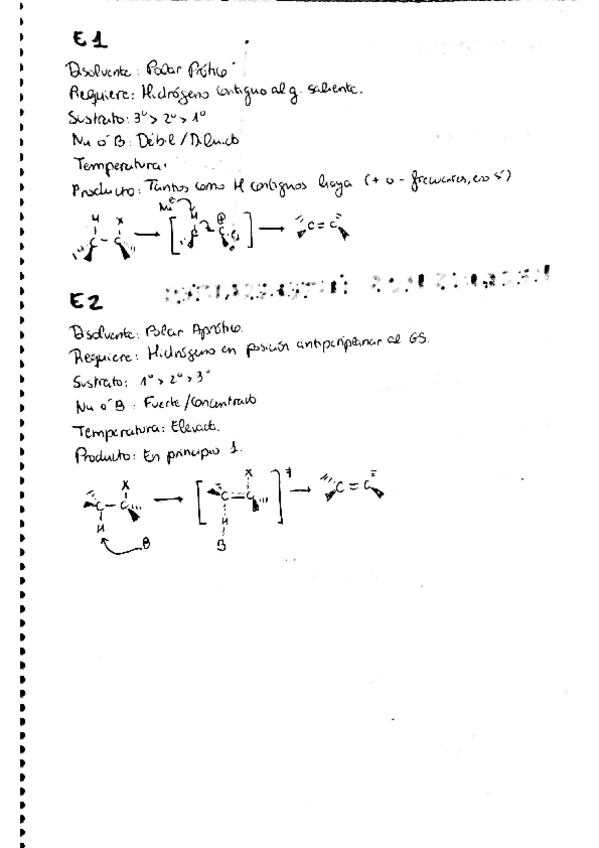 E1
Disolvente: Polar Prótico
Requiere: Hidrógeno contiguo al g. saliente.
Sustrato: 3º > 2º > 1º
Nu ó B: Débil / Diluido
Temperatura:
Producto: Tantos como H contiguos haya (+ o - frecuentes, eso sí)
Nu
H X H ⊕
C - C C C C = C
E2
Disolvente: Polar Aprótico.
Requiere: Hidrógeno en posición antiperiplanar al GS.
Sustrato: 1º > 2º > 3º
Nu ó B: Fuerte / Concentrado
Temperatura: Elevada.
Producto: En principio 1.
X X ‡
C - C C = C C = C
H H
B B